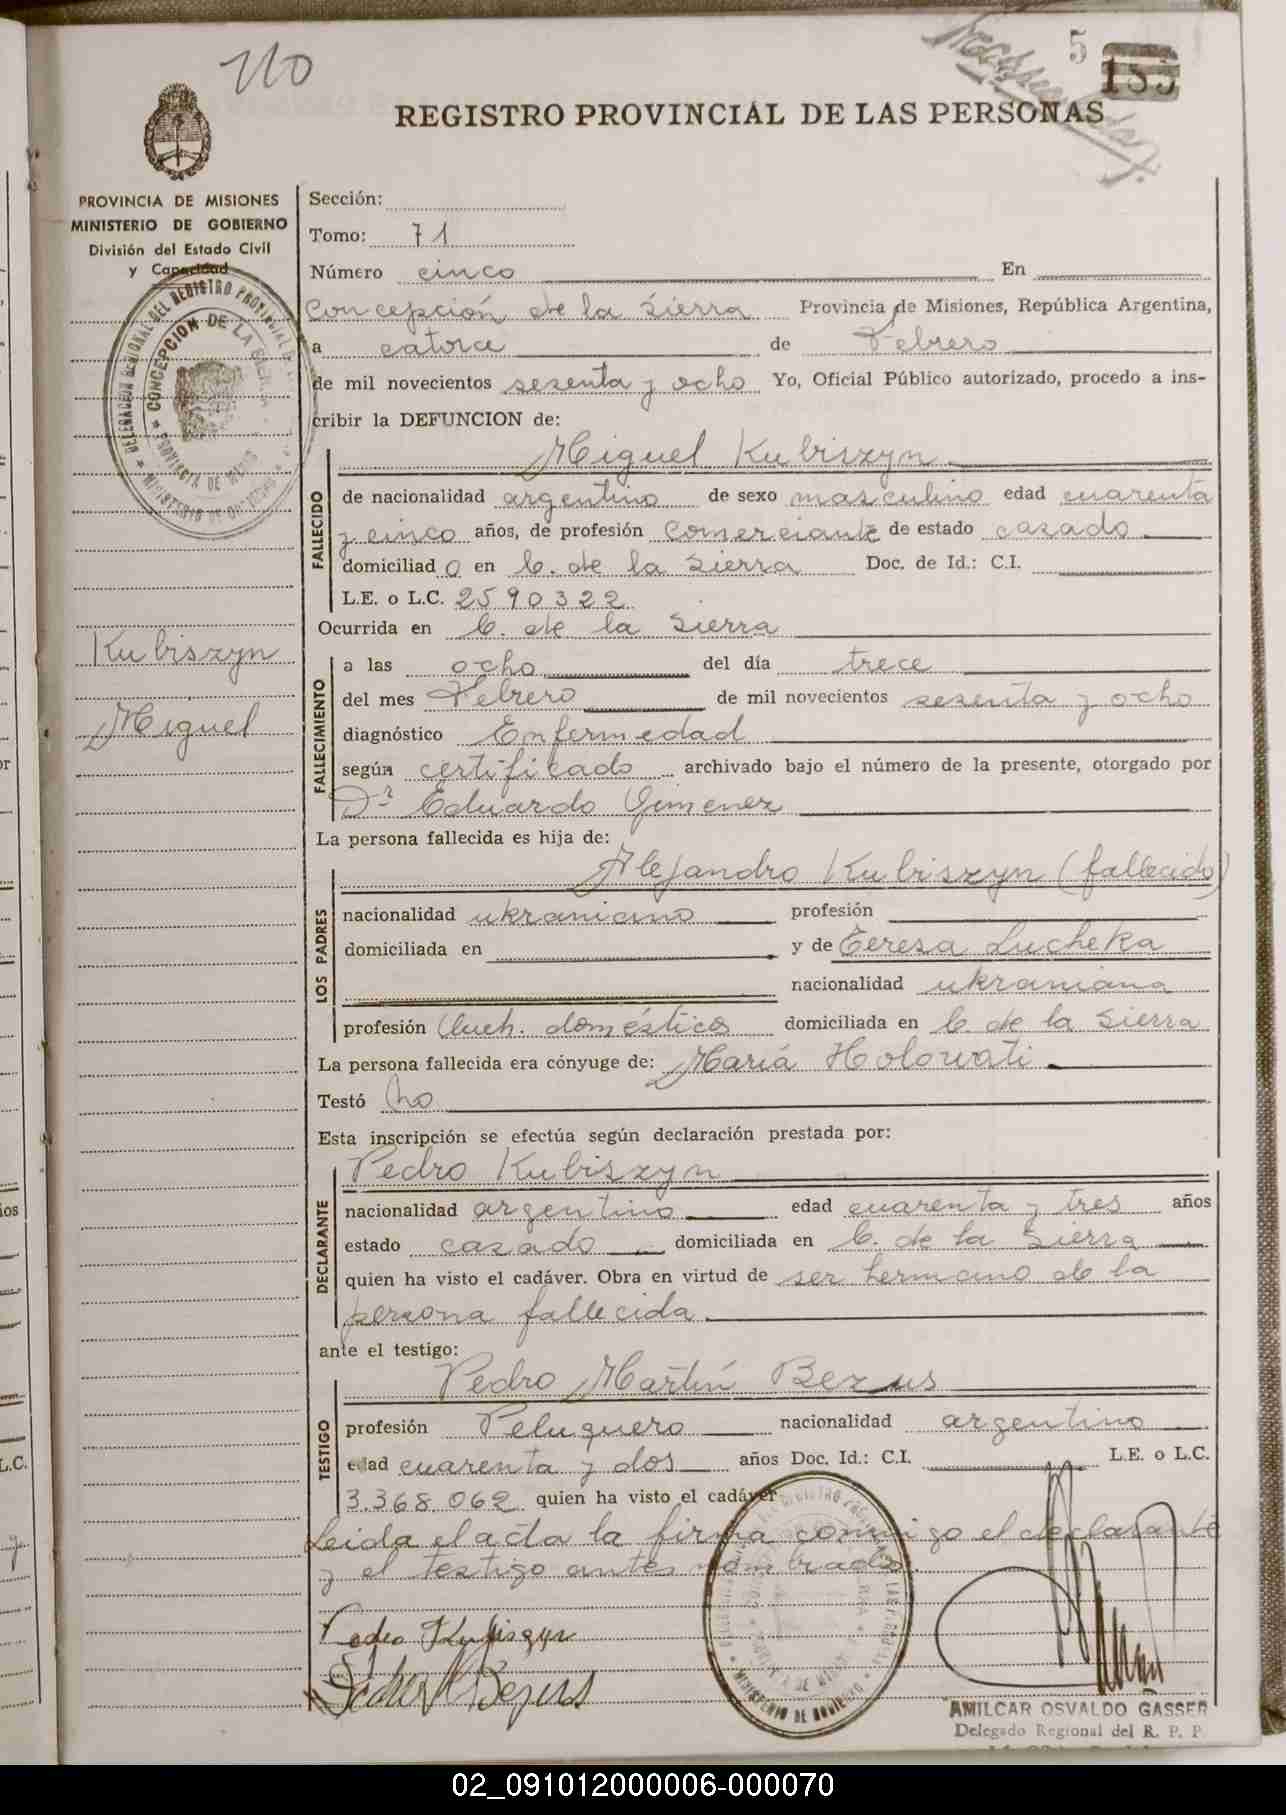 110
5
REGISTRO PROVINCIAL DE LAS PERSONAS
PROVINCIA DE MISIONES
MINISTERIO DE GOBIERNO
División del Estado Civil
y Capacidad
Kubiszyn
Miguel
Sección:
Tomo: 71
Número cinco En
Concepción de la Sierra Provincia de Misiones, República Argentina,
a catorce de Febrero
de mil novecientos sesenta y ocho Yo, Oficial Público autorizado, procedo a ins-
cribir la DEFUNCION de:
Miguel Kubiszyn
FALLECIDO
de nacionalidad argentino de sexo masculino edad cuarenta
y cinco años, de profesión Comerciante de estado casado
domiciliado en C. de la Sierra Doc. de Id.: C.I.
L.E. o L.C. 2590322
Ocurrida en C. de la Sierra
FALLECIMIENTO
a las ocho del día trece
del mes Febrero de mil novecientos sesenta y ocho
diagnóstico Enfermedad
según certificado archivado bajo el número de la presente, otorgado por
Dr Eduardo Gimenez
La persona fallecida es hija de:
LOS PADRES
Alejandro Kubiszyn (fallecido)
nacionalidad ukraniano profesión
domiciliada en y de Teresa Lucheka
nacionalidad ukraniana
profesión Queh. domésticos domiciliada en C. de la Sierra
La persona fallecida era cónyuge de: María Holowati
Testó no
Esta inscripción se efectúa según declaración prestada por:
DECLARANTE
Pedro Kubiszyn
nacionalidad argentino edad cuarenta y tres años
estado casado domiciliada en C. de la Sierra
quien ha visto el cadáver. Obra en virtud de ser hermano de la
persona fallecida
ante el testigo:
TESTIGO
Pedro Martín Bezus
profesión Peluquero nacionalidad argentino
edad cuarenta y dos años Doc. Id.: C.I. L.E. o L.C.
3.368.062 quien ha visto el cadáver
Leida el acta la firma conmigo el declarante
y el testigo antes nombrado.
Pedro Kubiszyn
Pedro M Bezus
AMILCAR OSVALDO GASSER
Delegado Regional del R. P. P.
02_091012000006-000070